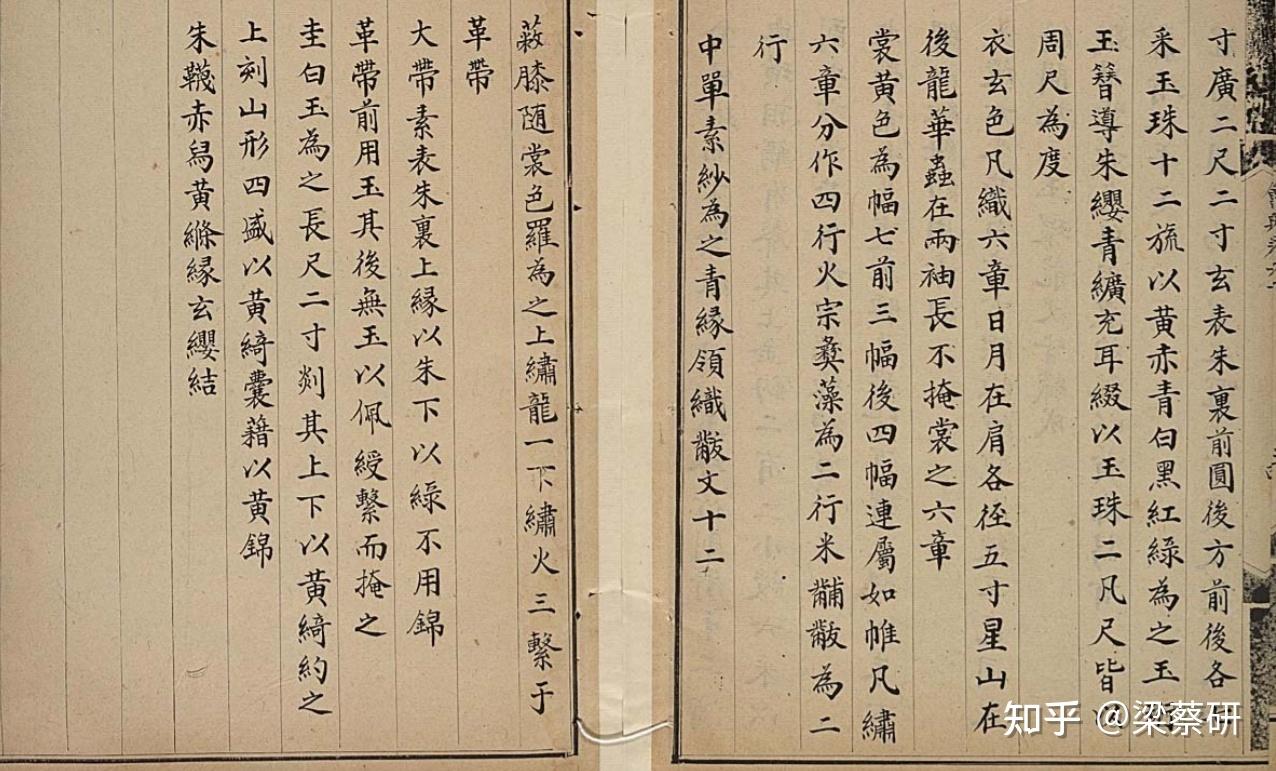 寸廣二尺二寸玄表朱裏前圓後方前後各七
采玉珠十二旒以黃赤青白黑紅綠為之玉
玉簪導朱纓青纊充耳綴以玉珠二凡尺皆以
周尺為度
衣玄色凡織六章日月在肩各徑五寸星山在
後龍華蟲在兩袖長不掩裳之六章
裳黃色為幅七前三幅後四幅連屬如帷凡繡
六章分作四行火宗彝藻為二行米黼黻為二
行
中單素紗為之青緣領織黻文十二
蔽膝随裳色羅為之上繡龍一下繡火三繫于
革帶
大帶素表朱裏上緣以朱下以綠不用錦
革帶前用玉其後無玉以佩綬繫而掩之
圭白玉為之長尺二寸剡其上下以黃綺約之
上刻山形四盛以黃綺囊藉以黃錦
朱韈赤舄黃絛緣玄纓結
知乎 @梁蔡研